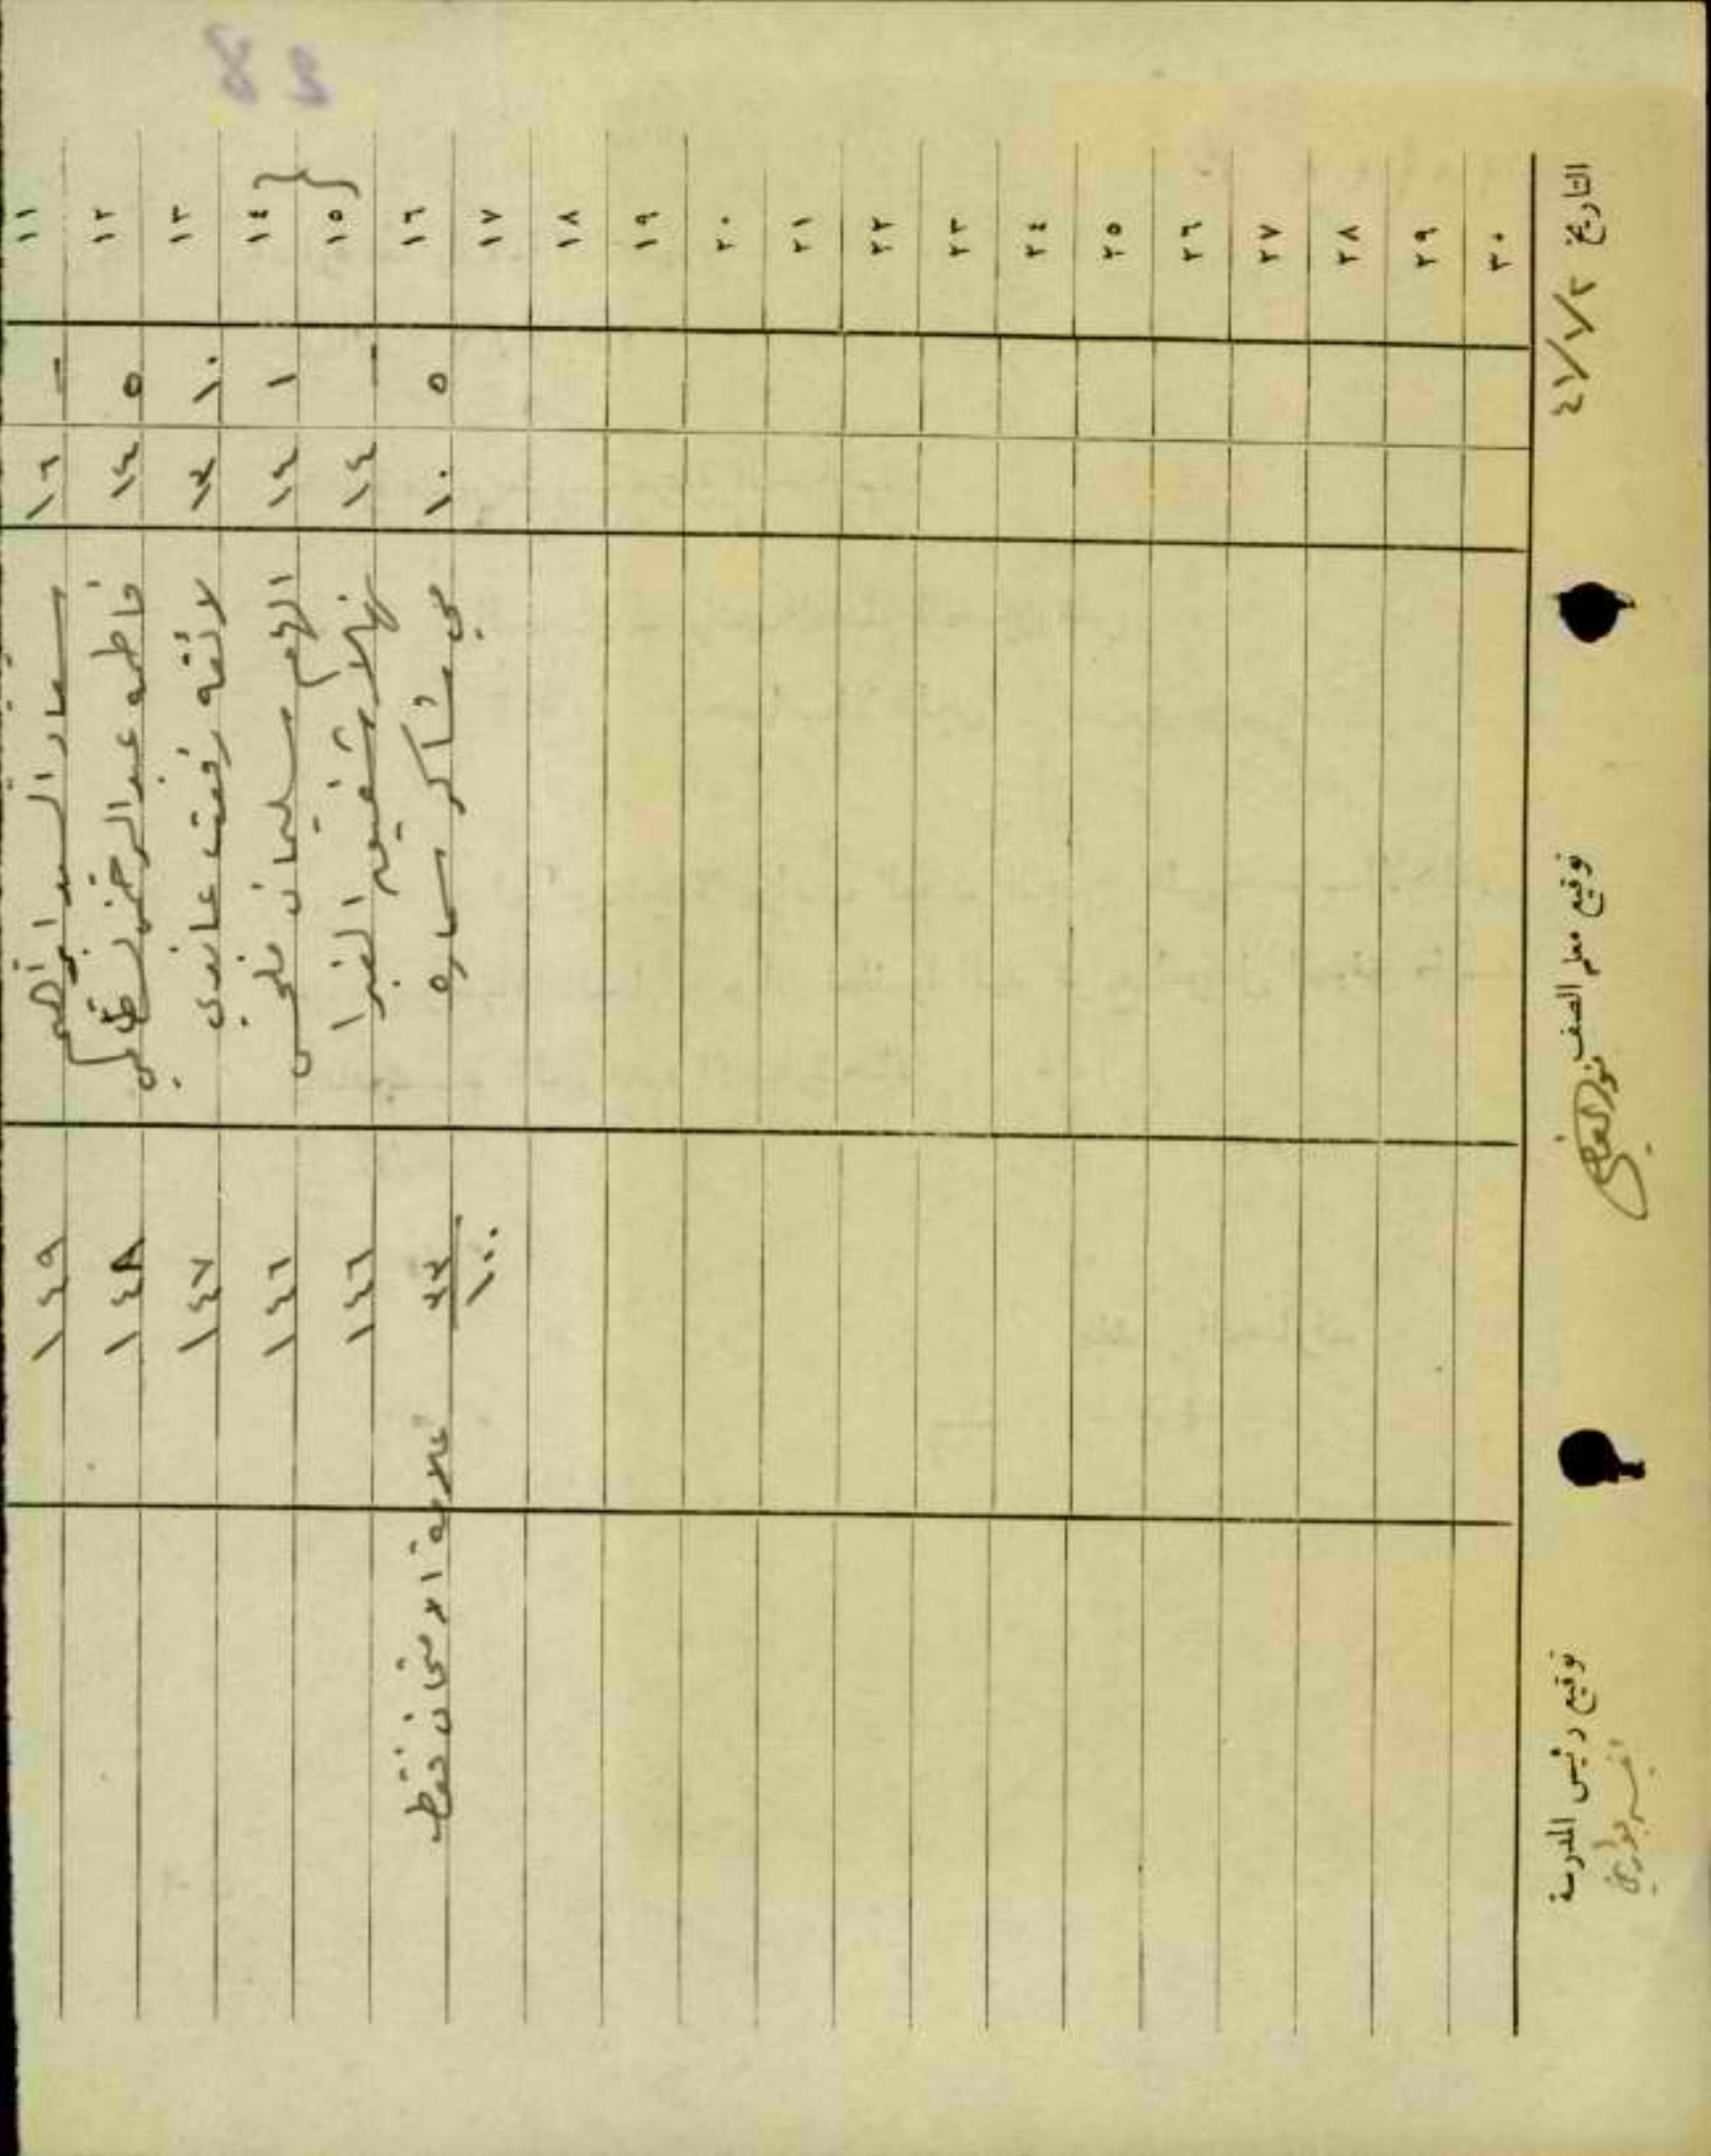 ١١ - ١٦ سعاد السيد ابراهيم ١٤٩
١٢ ٥ ١٤ فاطمه عبد الرحمن ١٤٨
١٣ ١٠ ١٣ لائقه رفعت ١٤٧
١٤ ١ ١٤ الهام سليمان ١٤٦
١٥ - ١٤ نهلا شفيق الغبرا ١٤٦
١٦ ٥ ١٠ مي شاكر سماره ٣٣/١٠٠ علامة الامتحان فقط
١٧
١٨
١٩
٢٠
٢١
٢٢
٢٣
٢٤
٢٥
٢٦
٢٧
٢٨
٢٩
٣٠
التاريخ ٤١/١/٢ توقيع معلم الصف توقيع رئيس المدرسة